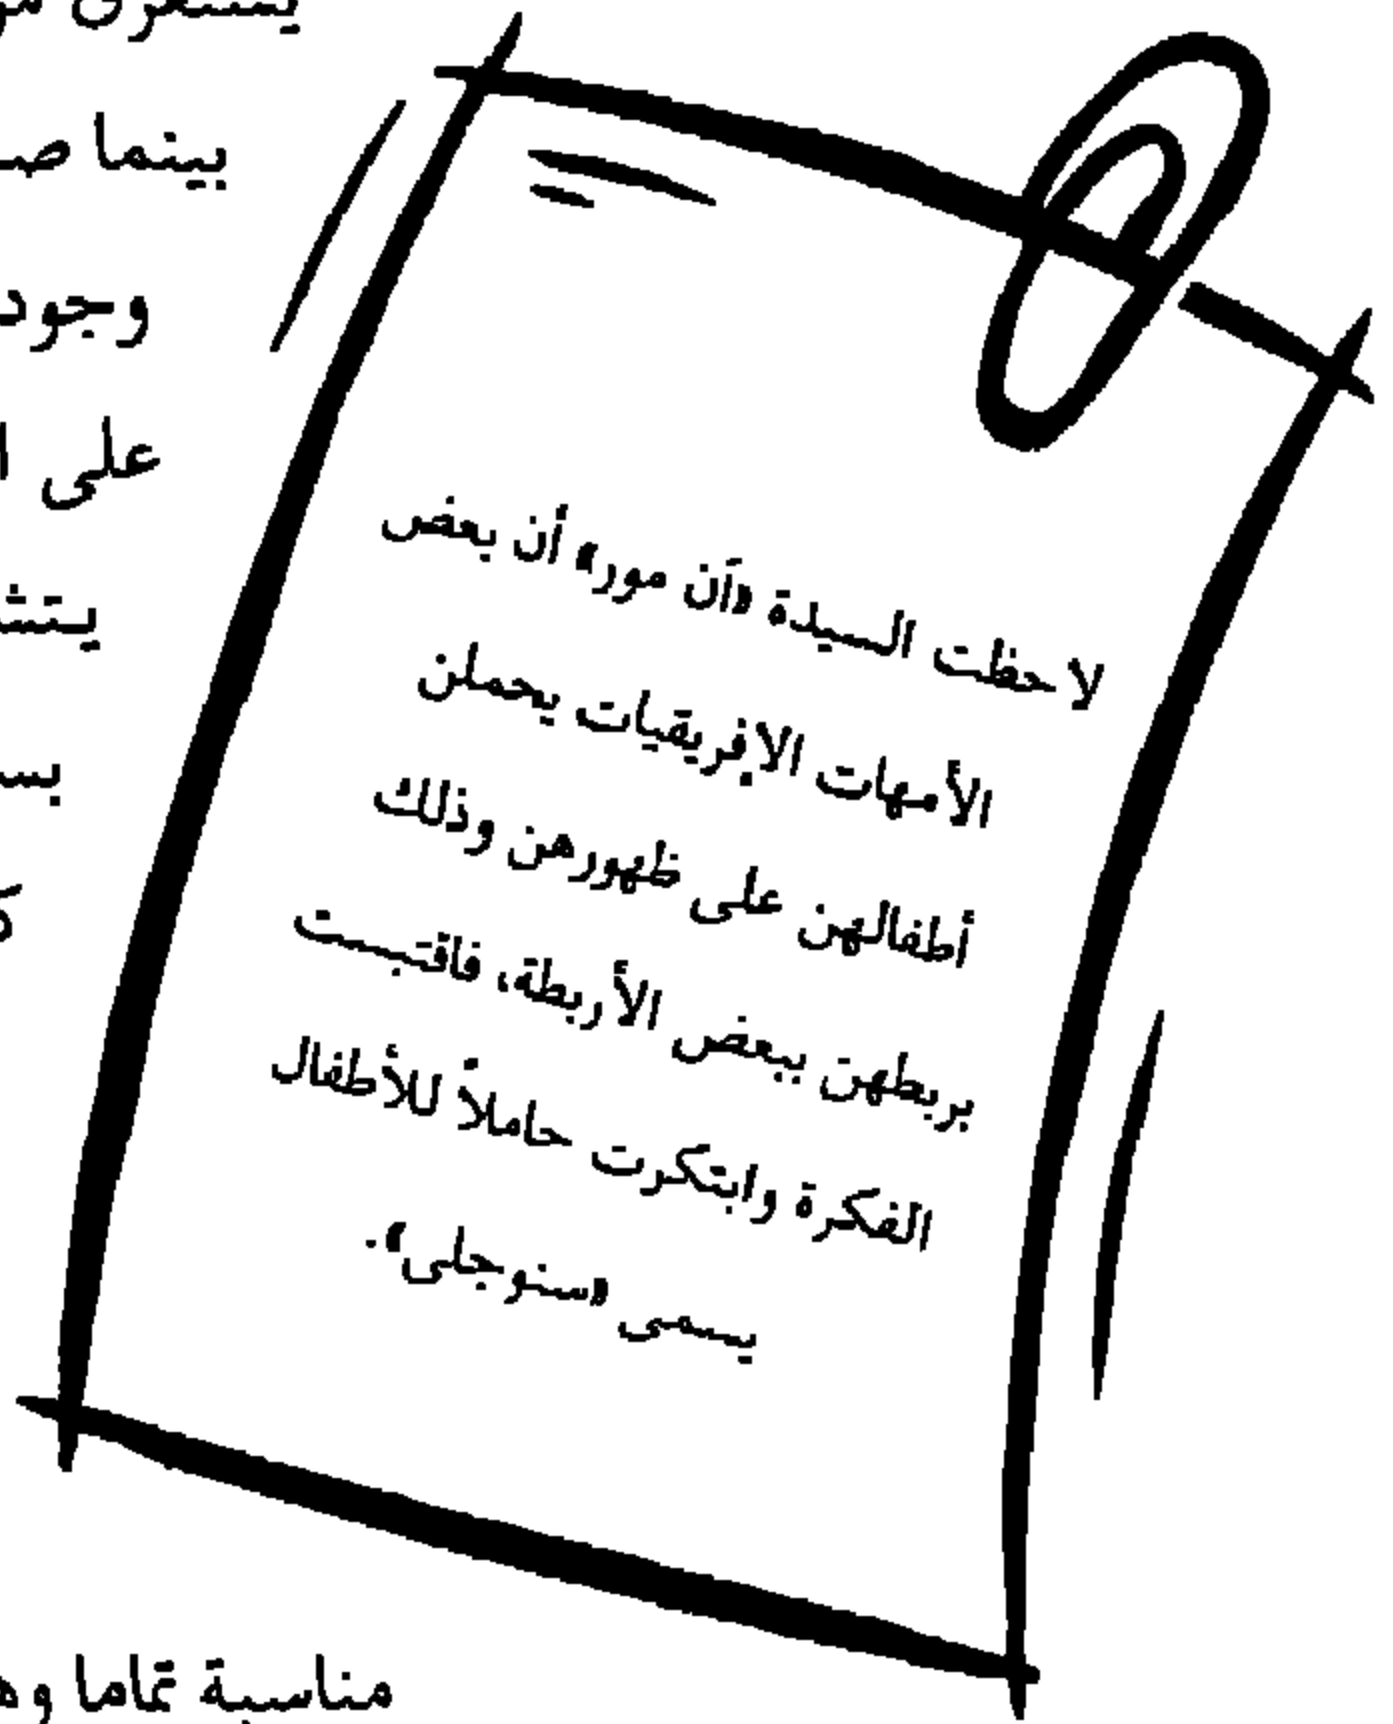 بينما
وجود
على
لاحظت السيدة «آن مور» أن بعض
الأمهات الإفريقيات يحملن
أطفالهن على ظهورهن وذلك
بربطهن ببعض الأربطة، فاقتبست
الفكرة وابتكرت حاملاً للأطفال
يسمى «سنوجلى».
مناسبة تماما